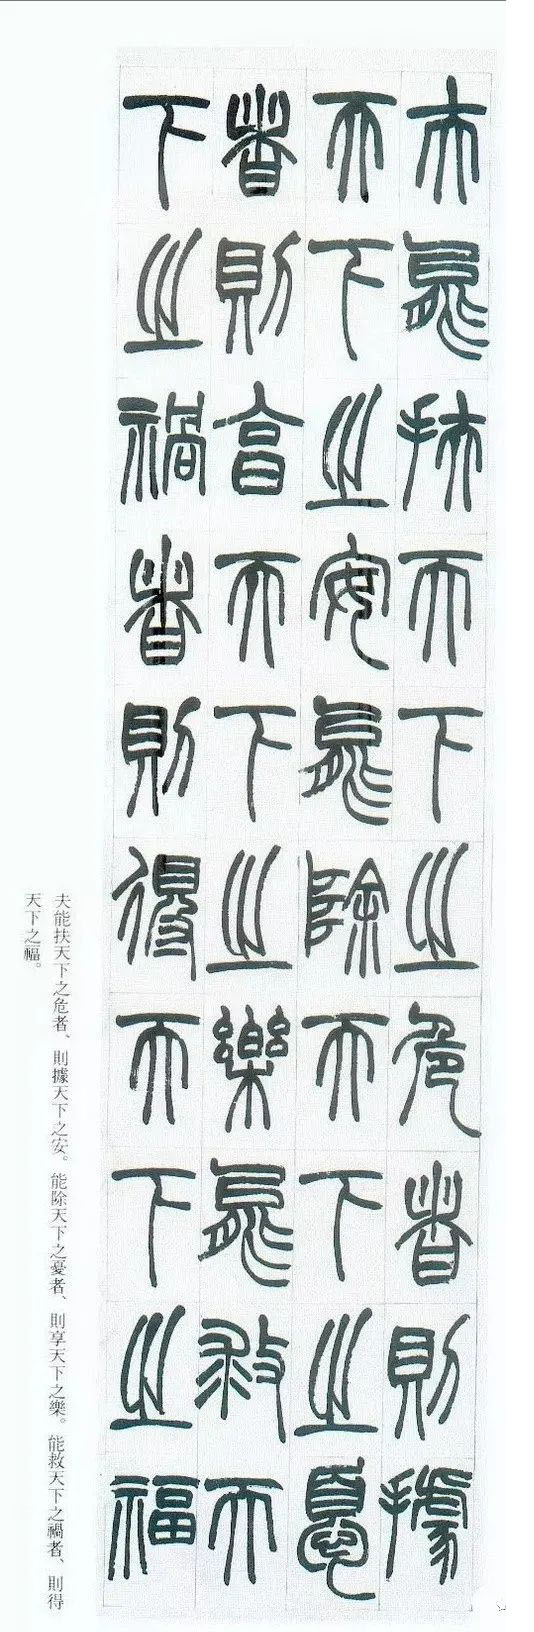 夫能扶天下之危者則據
天下之安能除天下之憂
者則享天下之樂能救天
下之禍者則得天下之福
夫能扶天下之危者、則據天下之安。能除天下之憂者、則享天下之樂。能救天下之禍者、則得
天下之福。